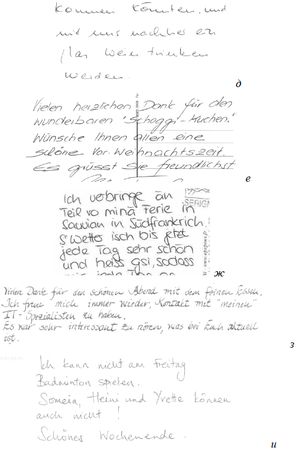 kommen könnten und
mit uns nachher ein
Glas Wein trinken
werden.
д
Vielen herzlichen Dank für den
wunderbaren "Schoggi-Kuchen".
Wünsche Ihnen allen eine
schöne Vor-Weihnachtszeit
Es grüsst Sie freundlichst
е
Ich verbringe än
Teil vo minä Ferie in
in Südfrankrich.
S'Wetter isch bis jetzt
jede Tag sehr schön
und heiss gsi, sodass
ж
Vielen Dank für den schönen Abend mit dem feinen Essen.
Ich freue mich immer wieder, Kontakt mit "meinen"
IT-Spezialisten zu haben.
Es war sehr interessant zu hören, was bei Euch aktuell
ist.
з
Ich kann nicht am Freitag
Badminton spielen.
Heini und Yvette können
auch nicht!
Schönes Wochenende.
и